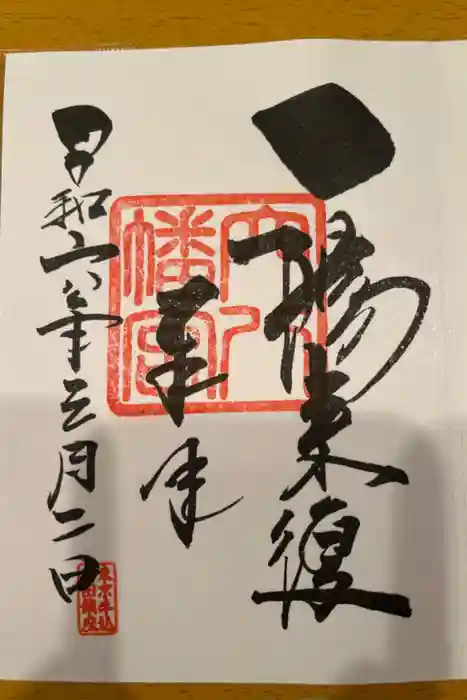 一陽来復
奉拝
穴八幡宮
令和六年三月二日